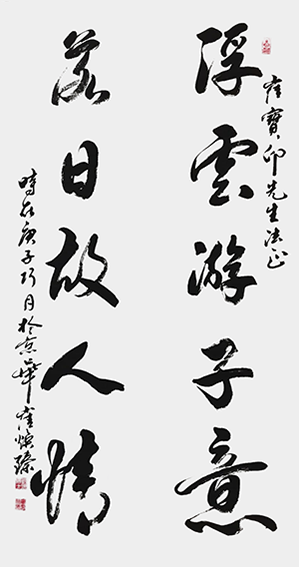 崔寶卯先生法正
浮雲游子意
落日故人情
時在庚子巧月於京華崔燦臻